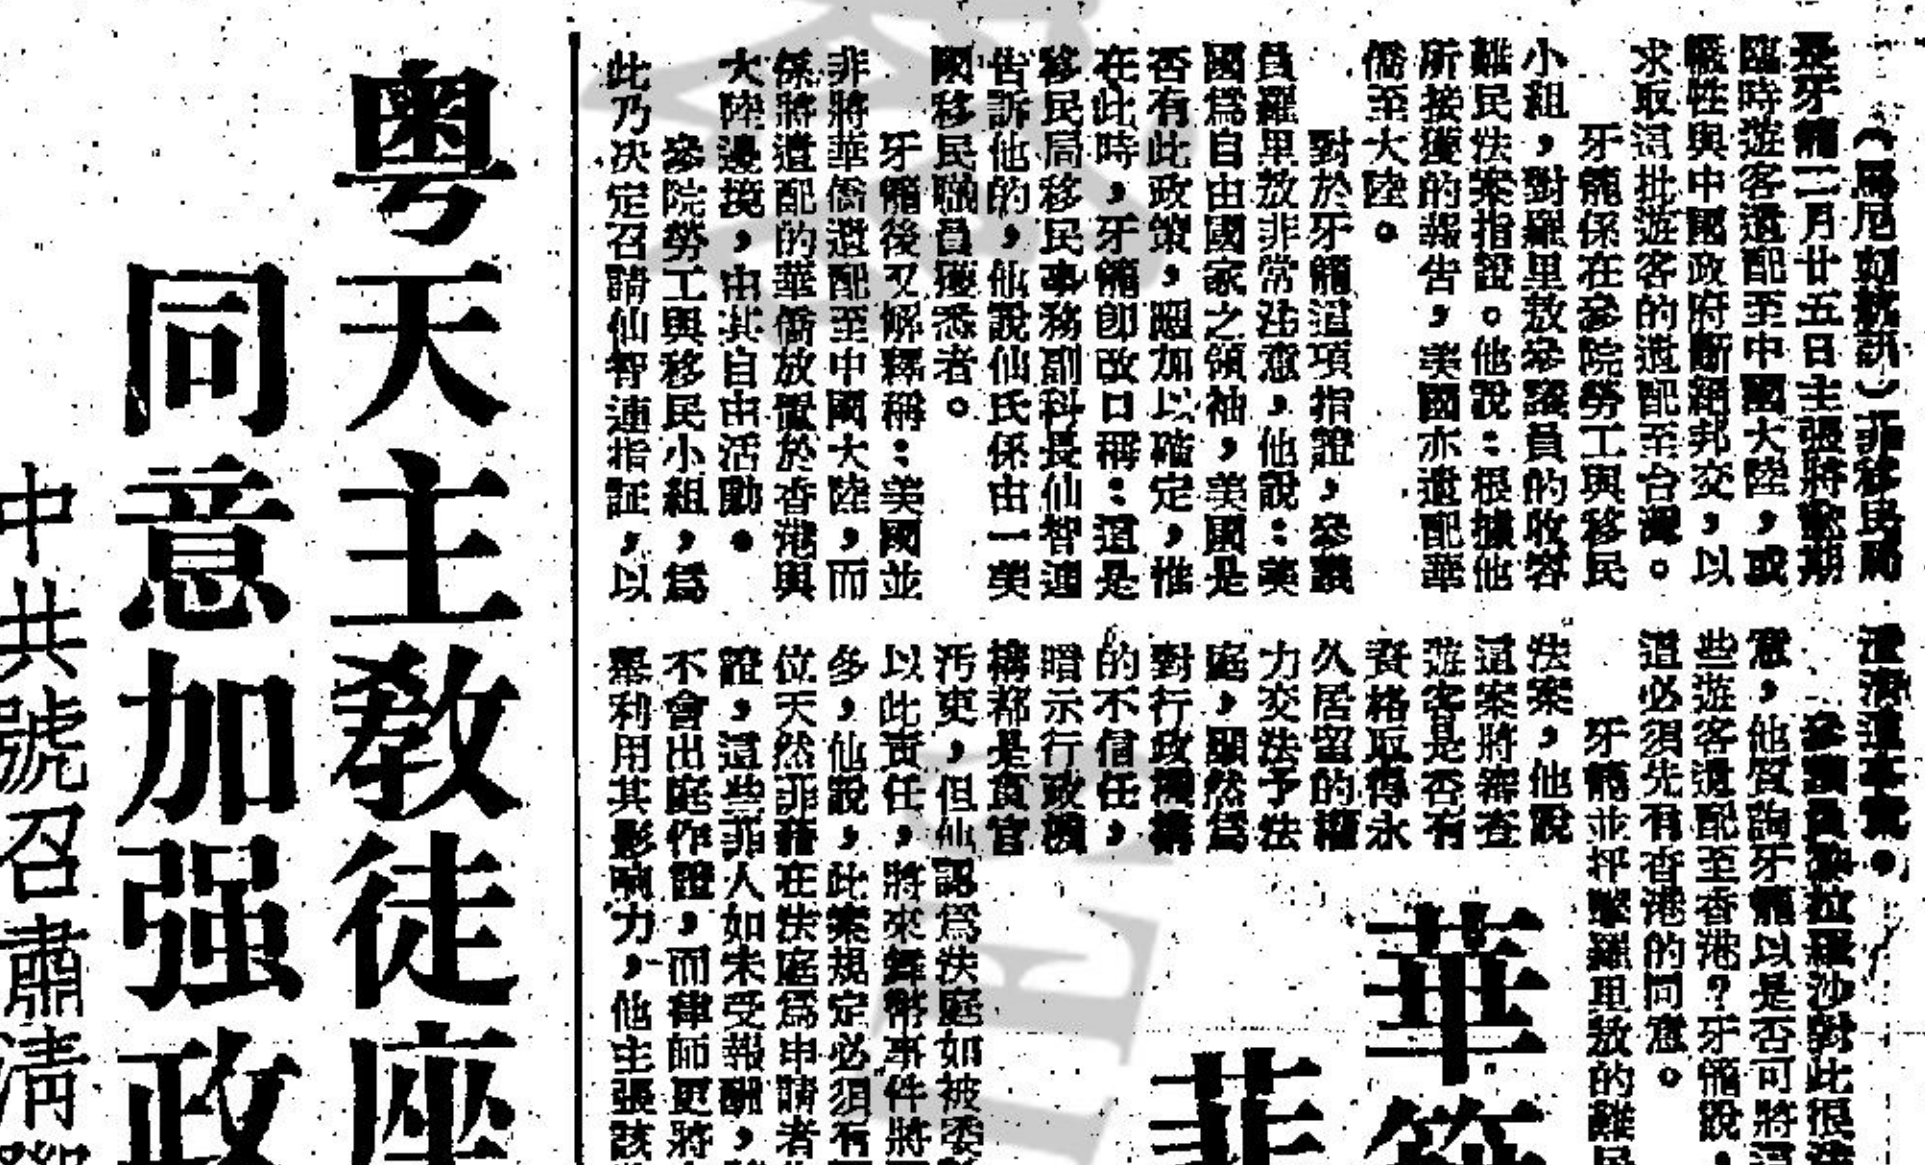 (馬尼剌航訊)菲移民局
長牙籠二月廿五日主張將逾期
臨時遊客遣配至中國大陸,或
犧牲與中國政府斷絕邦交,以
求取這批遊客的遣配至台灣。
牙籠係在參院勞工與移民
小組,對羅里敖參議員的收容
難民法案指證。他說:根據他
所接獲的報告,美國亦遣配華
僑至大陸。
對於牙籠這項指證,參議
員羅里敖非常注意,他說:美
國為自由國家之領袖,美國是
否有此政策,應加以確定,惟
在此時,牙籠卽改口稱:這是
移民局移民事務副科長仙智連
告訴他的,他說仙氏係由一美
國移民職員獲悉者。
牙籠後又解釋稱:美國並
非將華僑遣配至中國大陸,而
係將遣配的華僑放置於香港與
大陸邊境,由其自由活動。
參院勞工與移民小組,為
此乃決定召請仙智連指証,以
澄清這本案。
參議員 拉羅沙對此很注
意,他質詢牙籠以是否可將這
些遊客遣配至香港?牙籠說,
道必須先有香港的同意。
牙籠並抨擊羅里敖的難民
法案,他說
這案將審查
遊客是否有
資格取得永
久居留的權
力交法予法
庭,顯然為
對行政機構
的不信任,
暗示行政機
構都是貪官
污吏,但仙認為法庭如被委
以此責任,將來舞弊事件將
多,仙說,此案規定必須有
位天然菲籍在法庭為申請者
證,這些菲人如未受報酬,
不會出庭作證,而律師更將
利用其影响力,他主張該
華
菲
粤天主教徒座
同意加强政
中共號召肅清